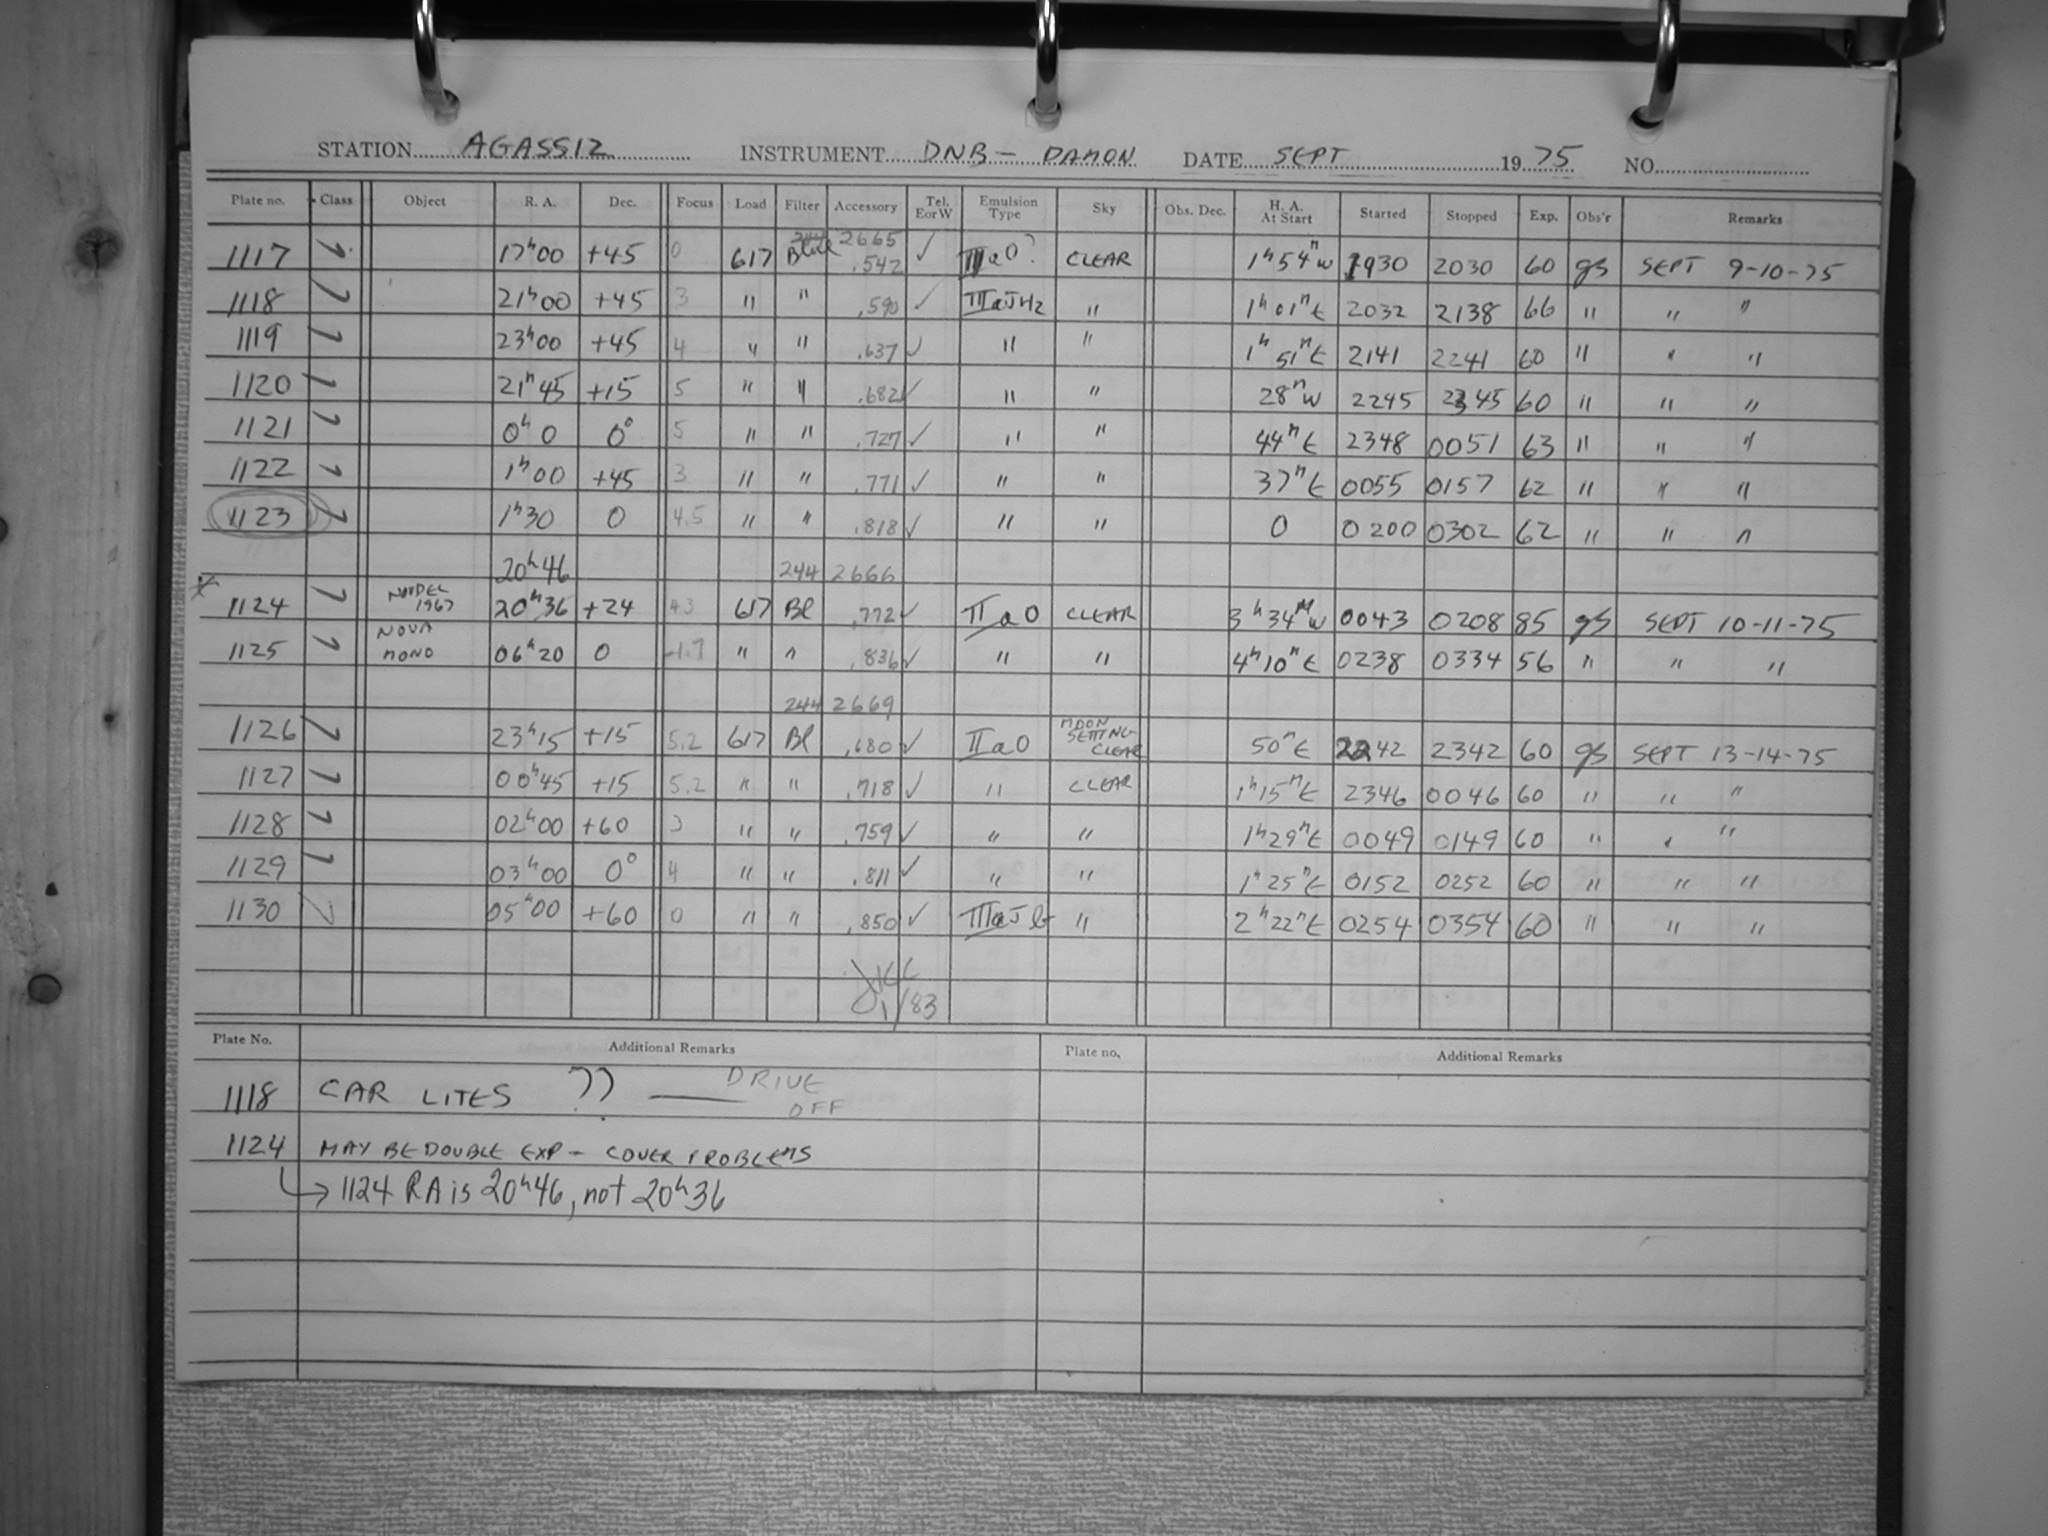 STATION AGASSIZ INSTRUMENT DNB - DAMON DATE SEPT 1975 NO.
Plate no. Class Object R. A. Dec. Focus Load Filter Accessory Tel. E or W Emulsion Type Sky Obs. Dec. H. A. At Start Started Stopped Exp. Obs'r Remarks
244 2665
1117 17h00 +45 0 617 Blue .542 ✓ IIaO? CLEAR 1h54m W 1930 2030 60 gs SEPT 9-10-75
1118 21h00 +45 3 " " .590 ✓ IIIaJH2 " 1h01m E 2032 2138 66 " " "
1119 23h00 +45 4 " " .637 ✓ " " 1h51m E 2141 2241 60 " " "
1120 21h45 +15 5 " " .682 ✓ " " 28m W 2245 2345 60 " " "
1121 0h0 0° 5 " " .727 ✓ " " 44m E 2348 0051 63 " " "
1122 1h00 +45 3 " " .771 ✓ " " 37m E 0055 0157 62 " " "
1123 1h30 0 4.5 " " .818 ✓ " " 0 0200 0302 62 " " "
20h46 244 2666
1124 NOVDEL 1967 20h36 +24 4.3 617 Bl .772 ✓ IIaO CLEAR 3h34m W 0043 0208 85 gs SEPT 10-11-75
1125 NOVA MONO 06h20 0 -1.7 " " .836 ✓ " " 4h10m E 0238 0334 56 " " "
244 2669
1126 23h15 +15 5.2 617 Bl .680 ✓ IIaO MOON SETTING CLEAR 50m E 2242 2342 60 gs SEPT 13-14-75
1127 00h45 +15 5.2 " " .718 ✓ " CLEAR 1h15m E 2346 0046 60 " " "
1128 02h00 +60 3 " " .759 ✓ " " 1h29m E 0049 0149 60 " " "
1129 03h00 0° 4 " " .811 ✓ " " 1h25m E 0152 0252 60 " " "
1130 05h00 +60 0 " " .850 ✓ IIIaJ " 2h22m E 0254 0354 60 " " "
1/83
Plate No. Additional Remarks Plate no. Additional Remarks
1118 CAR LITES ?? — DRIVE OFF
1124 MAY BE DOUBLE EXP - COVER PROBLEMS
→ 1124 RA is 20h46, not 20h36